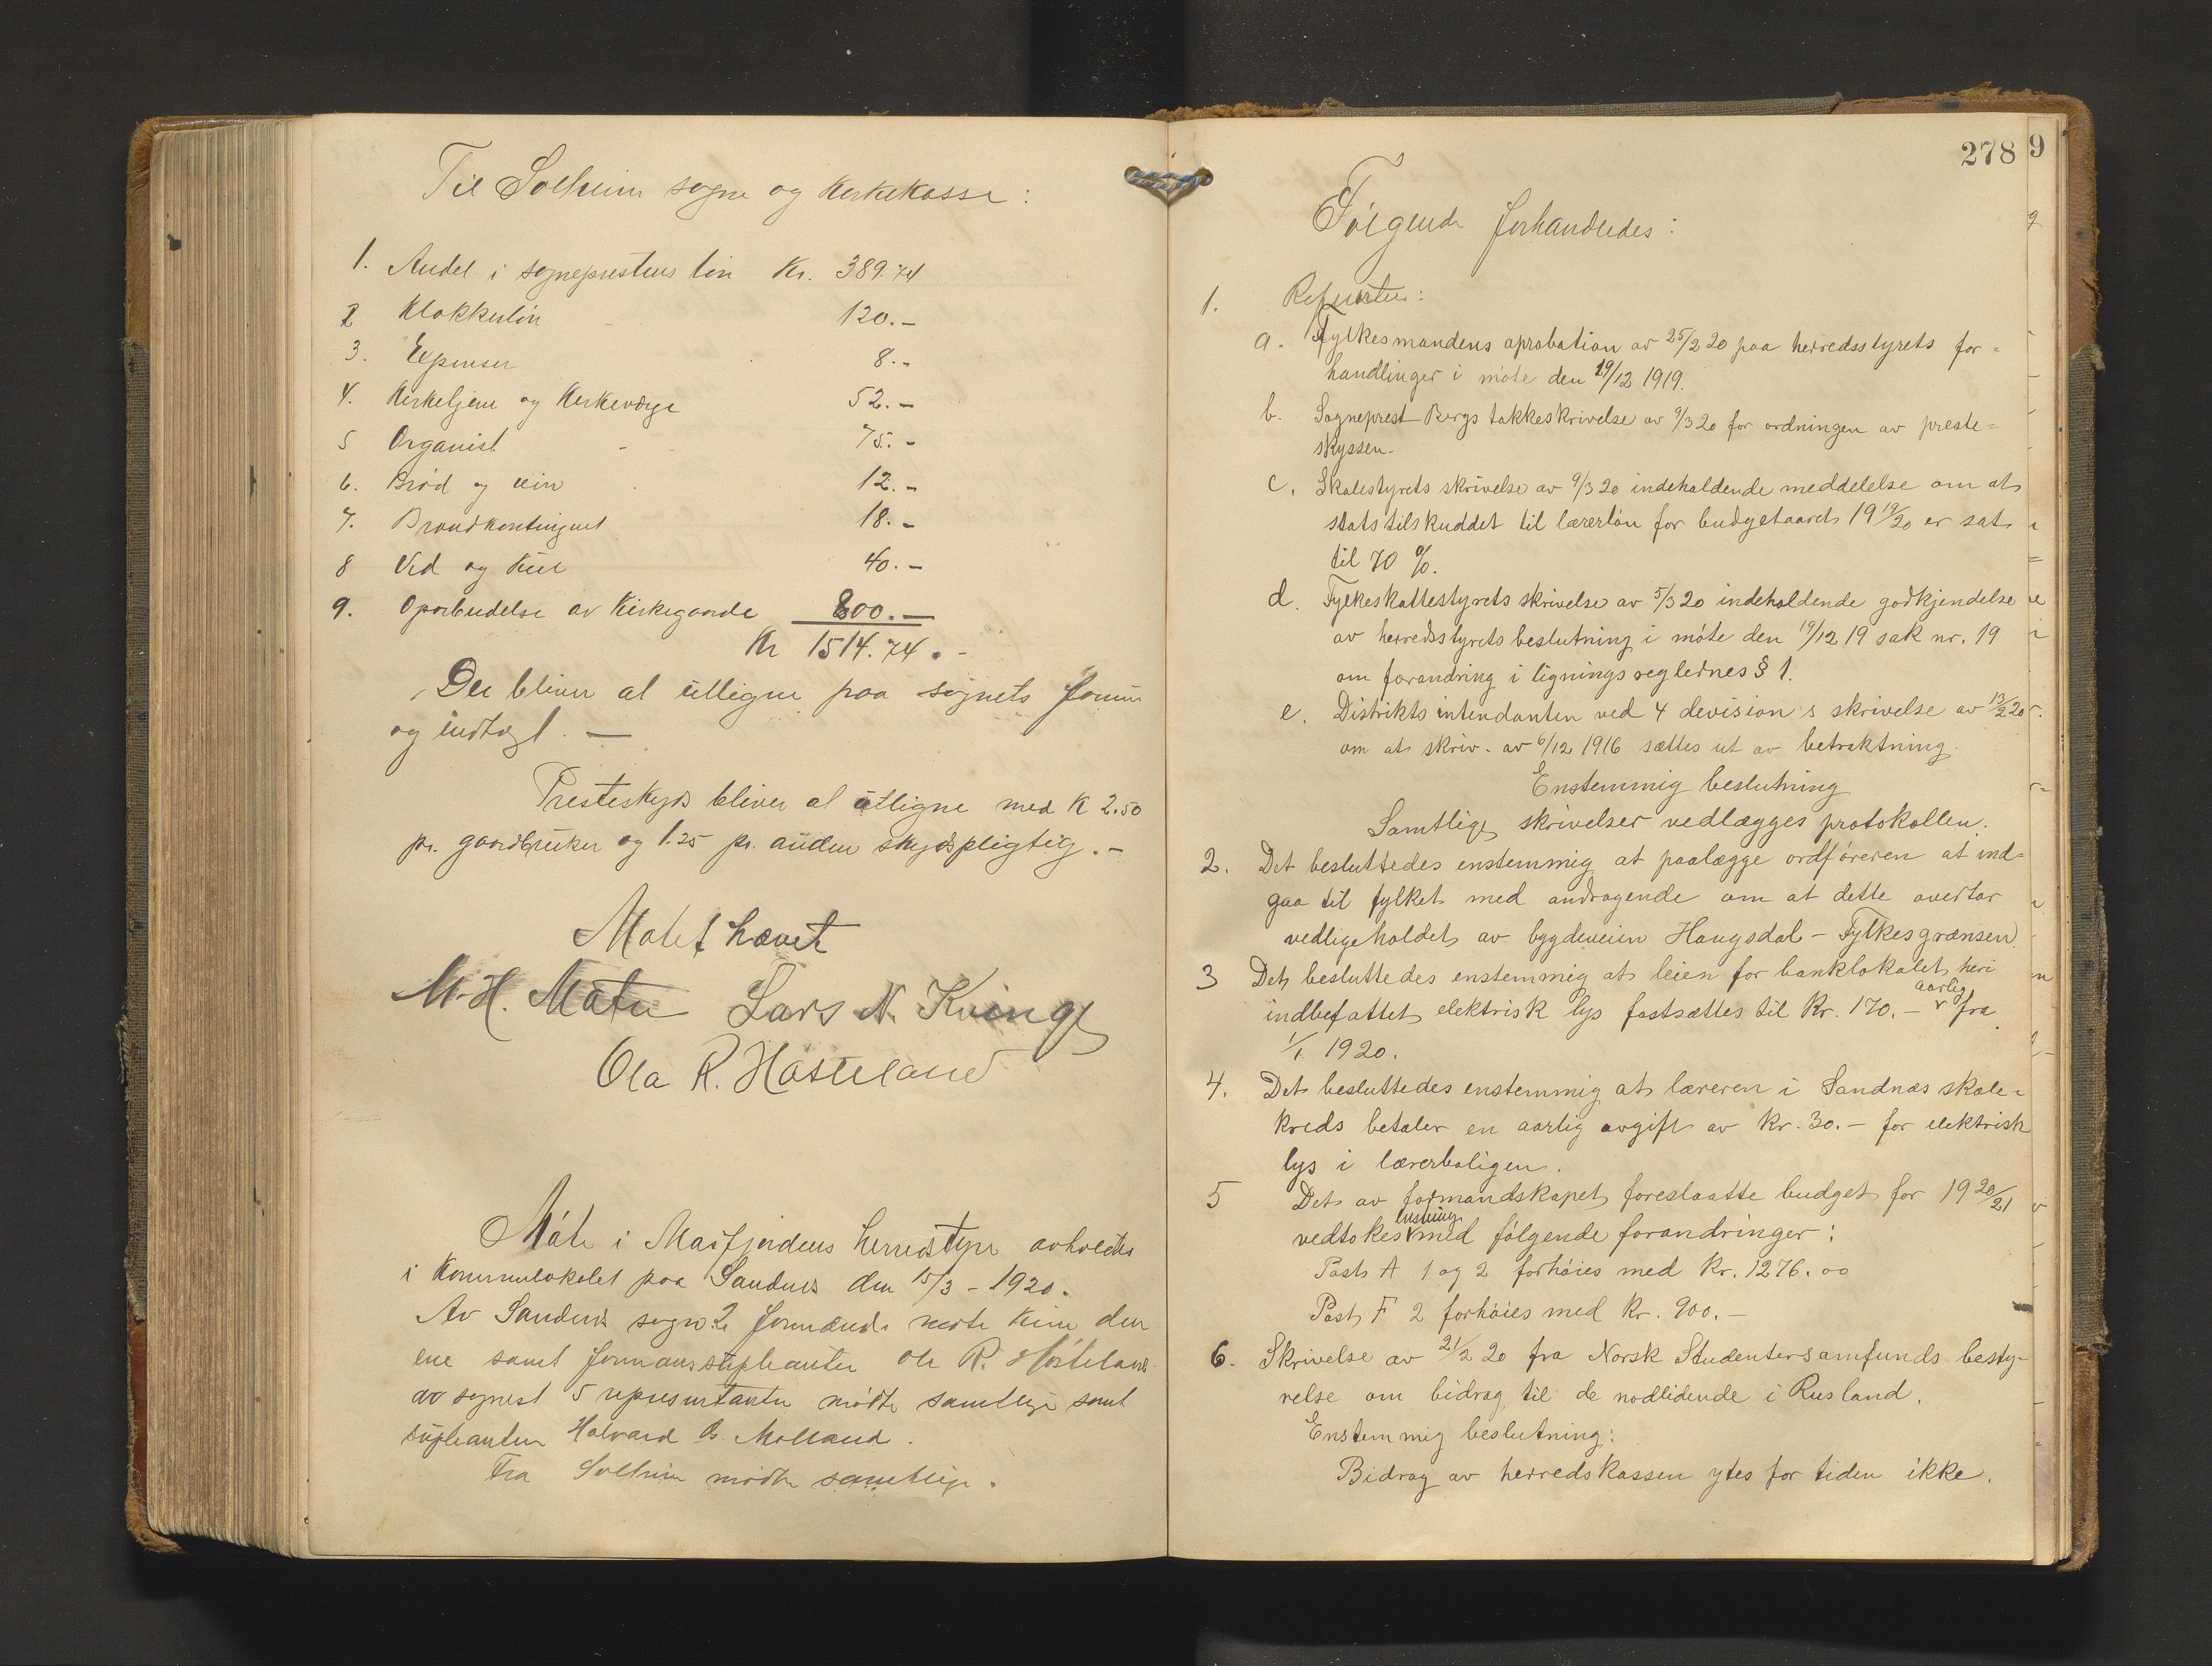 Til Solheim sogne og Kirkekasse:
1. Andel i sogneprestens løn Kr. 389.74
2 Klokkerløn - 120.-
3. Expenser 8.-
4. Kirketjener og Kirkeværge 52.-
5 Organist - - 75.-
6. Brød og vin 12.-
7. Brandkontingent 18.-
8 Ved og Kul 40.-
9. Oparbeidelse av Kirkegaarde 800.-
Kr 1514.74.-
Der bliver at utligne paa sognets formue
og indtægt. —
Presteskyds bliver at utligne med K 2.50
pr. gaardbruker og 1.25 pr. anden skydspligtig. -
Møtet hævet
M. H. Matre Lars N. Kvinge
Ola R. Hosteland
Møte i Masfjordens herredstyre avholdtes
i Kommunelokalet paa Sandnes den 15/3 - 1920.
Av Sandnes sogn 2 formænd møtte kun den
ene samt formanssupleanten Ole R. Hosteland
av sognets 5 representanter mødte samtlige samt
supleanten Halvard B. Molland.
Fra Solheim mødte samtlige.
278 9
Følgende forhandledes:
1. Refererter:
a. Fylkesmandens aprobation av 25/2 20 paa herredsstyrets for=
handlinger i møte den 19/12 1919.
b. Sogneprest Bergs takkeskrivelse av 9/3 20 for ordningen av preste=
skyssen.
c. Skolestyrets skrivelse av 9/3 20 indeholdende meddelelse om at
statstilskuddet til lærerløn for budgetaaret 19 19/20 er sat
til 70 %.
d. Fylkeskattestyrets skrivelse av 5/3 20 indeholdende godkjendelse
av herredsstyrets beslutning i møte den 19/12 19 sak nr. 19
om forandring i ligningsreglernes § 1.
e. Distriktsintendanten ved 4 devisions skrivelse av 13/2 20
om at skriv. av 6/12 1916 sættes ut av betraktning.
Enstemmig beslutning
Samtlige skrivelser vedlægges protokollen.
2. Det besluttedes enstemmig at paalægge ordføreren at ind=
gaa til fylket med andragende om at dette overtar
vedligeholdet av bygdeveien Haugsdal - Fylkesgrænsen.
3 Det besluttedes enstemmig at leien for banklokalet heri
indbefattet elektrisk lys fastsættes til Kr. 170.- aarlig fra
1/1 1920.
4. Det besluttedes enstemmig at læreren i Sandnæs skole=
kreds betaler en aarlig avgift av Kr. 30.- for elektrisk
lys i lærerboligen.
5 Det av formandskapet foreslaatte budget for 19 20/21
vedtokes enstemmig med følgende forandringer:
Post A 1 og 2 forhøies med Kr. 1276.00
Post F 2 forhøies med Kr. 900.-
6. Skrivelse av 21/2 20 fra Norsk Studentersamfunds besty-
relse om bidrag til de nødlidende i Rusland.
Enstemmig beslutning:
Bidrag av herredskassen ytes for tiden ikke.